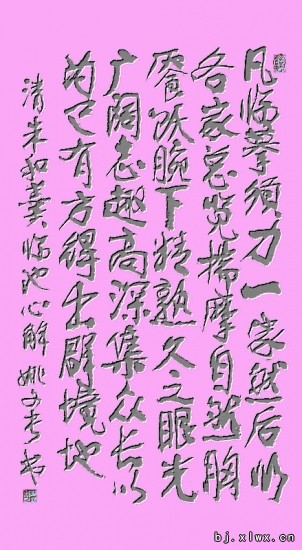 凡临摹须力一家然后以
各家总览揣摩自然胸
餍饫腕下精熟久之眼光
广阔志趣高深集众长以
为己有方得出群境地
清朱和羹临池心解 姚文书
bj.xlwx.cn